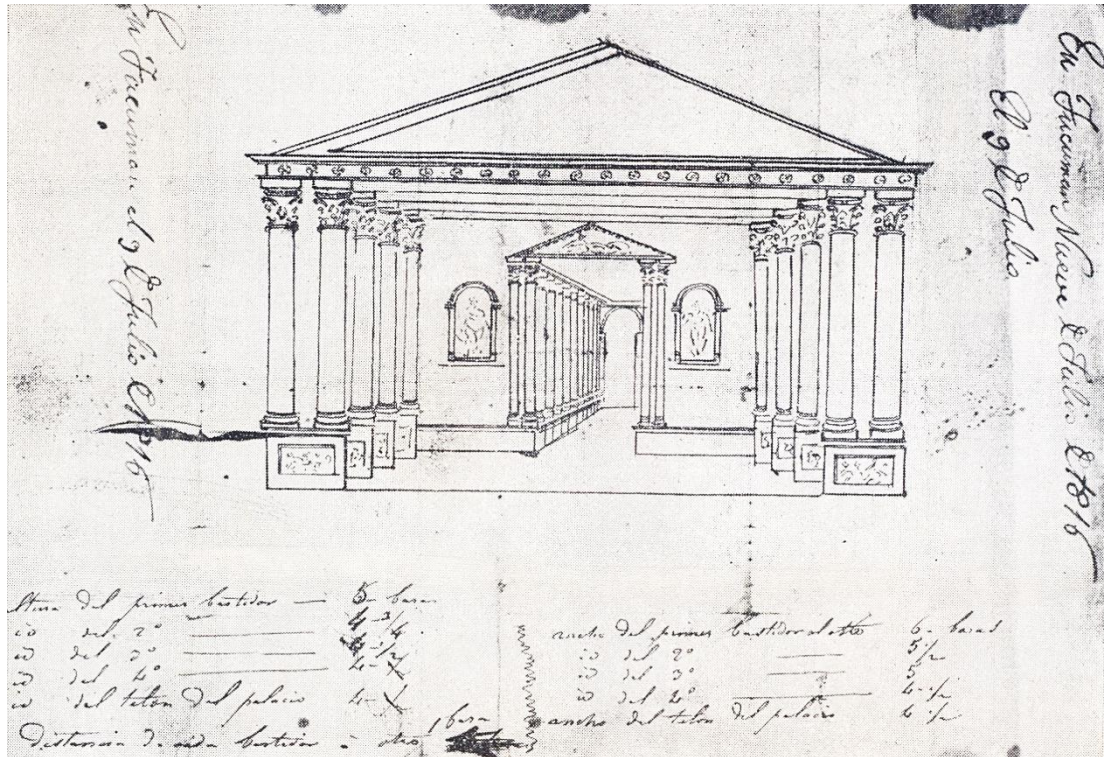 En Tucuman el 9 de Julio de 1816
En Tucuman Nueve de Julio de 1816
El 9 de Julio
ltura del primer bastidor — 5 - baras
id del 2º — 4 - 3/4
id del 3º — 4 - 1/2
id del 4º — 4 -
id del telon del palacio 4 -
Distancia de cada bastidor a otro 1 bara
ancho del primer bastidor al otro 6 - baras
id del 2º — 5 1/2
id del 3º — 5
id del 4º — 4 - 1/2
ancho del telon del palacio 4 1/2